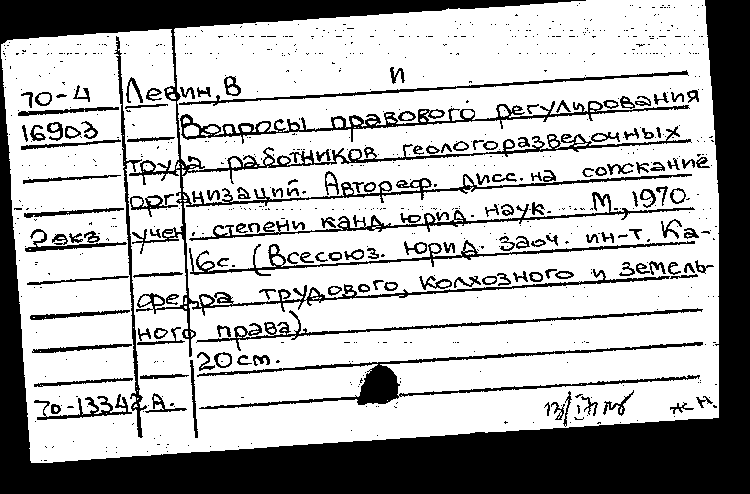 70-4 Левин, В И
16903 Вопросы правового регулирования
труда работников геологоразведочных
организаций. Автореф. дисс. на соискание
2 экз учен. степени канд. юрид. наук. М., 1970
16с. (Всесоюз. юрид. заоч. ин-т. Ка-
федра трудового, колхозного и земель-
ного права).
20 см.
70-13342 А.
жн